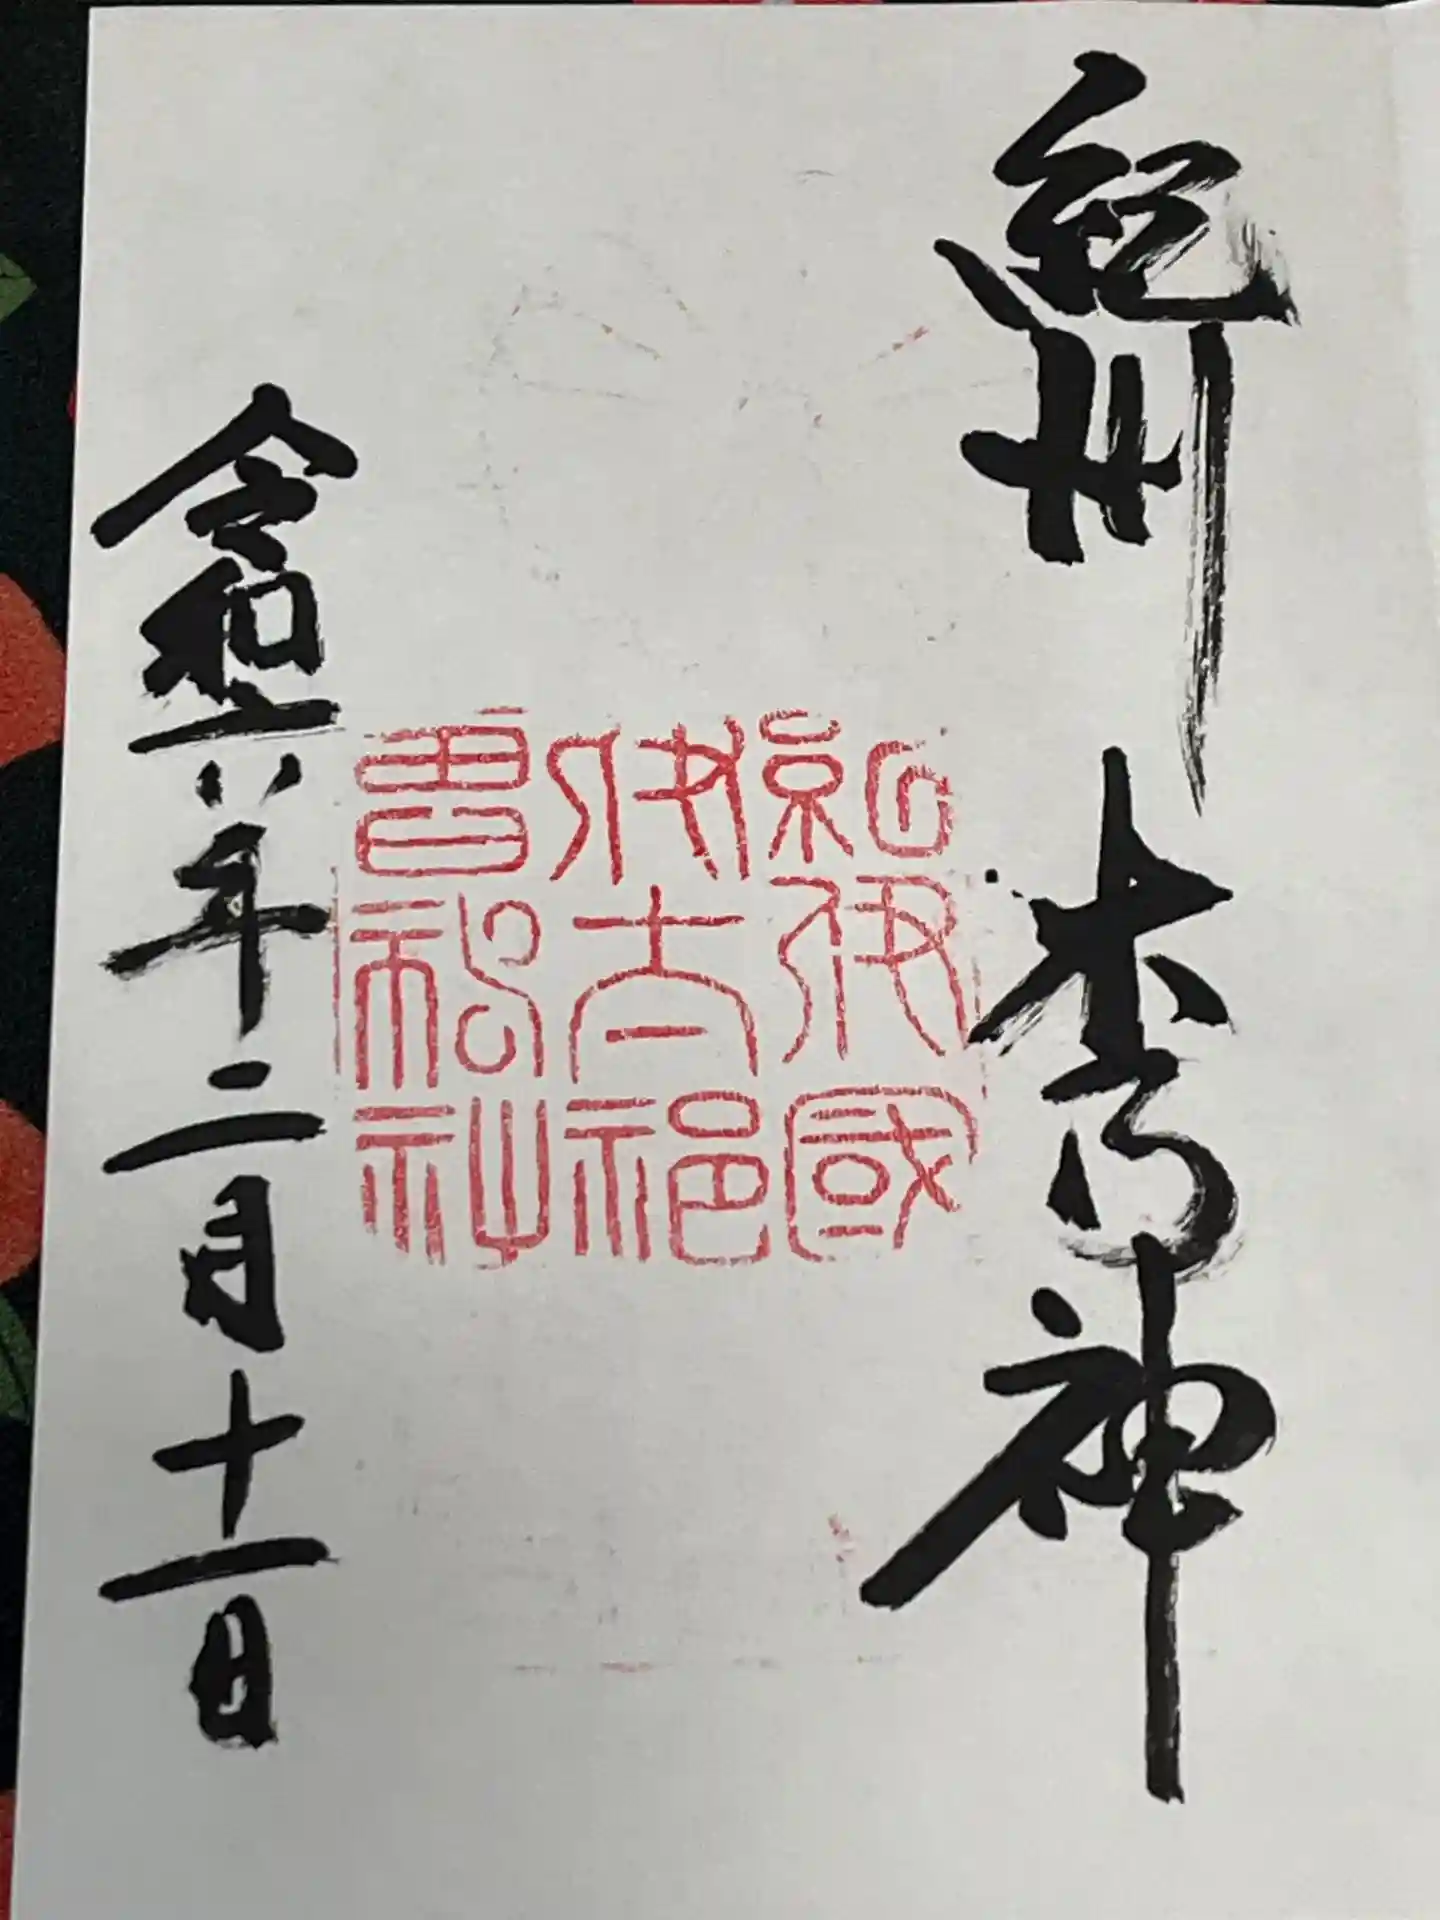 紀州 木の神
紀伊國
伊太祁
曽神社
令和六年二月十一日